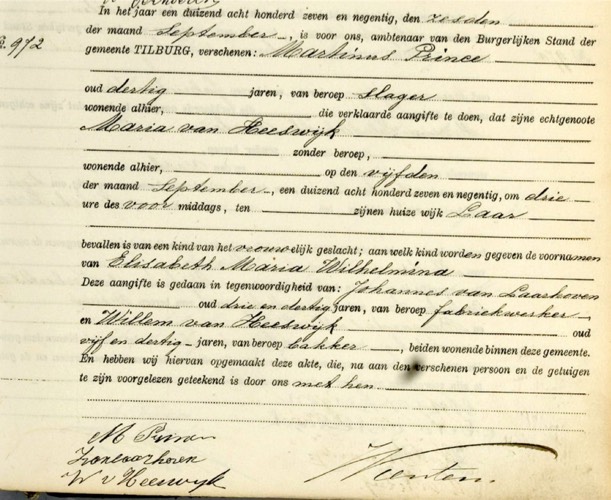 In het jaar een duizend acht honderd zeven en negentig, den zesden
No. 972
der maand September, is voor ons, ambtenaar van den Burgerlijken Stand der
gemeente TILBURG, verschenen: Martinus Prince
oud dertig jaren, van beroep slager
wonende alhier, die verklaarde aangifte te doen, dat zijne echtgenoote
Maria van Heeswijk
zonder beroep,
wonende alhier, op den vijfden
der maand September, een duizend acht honderd zeven en negentig, om drie
ure des voor middags, ten zijnen huize wijk Laar
bevallen is van een kind van het vrouwelijk geslacht; aan welk kind worden gegeven de voornamen
van Elisabeth Maria Wilhelmina
Deze aangifte is gedaan in tegenwoordigheid van: Johannes van Laarhoven
oud drie en dertig jaren, van beroep fabriekwerker
en Willem van Heeswijk oud
vijf en dertig jaren, van beroep bakker, beiden wonende binnen deze gemeente.
En hebben wij hiervan opgemaakt deze akte, die, na aan den verschenen persoon en de getuigen
te zijn voorgelezen geteekend is door ons met hen.
M Prince
J van Laarhoven
W v Heeswijk